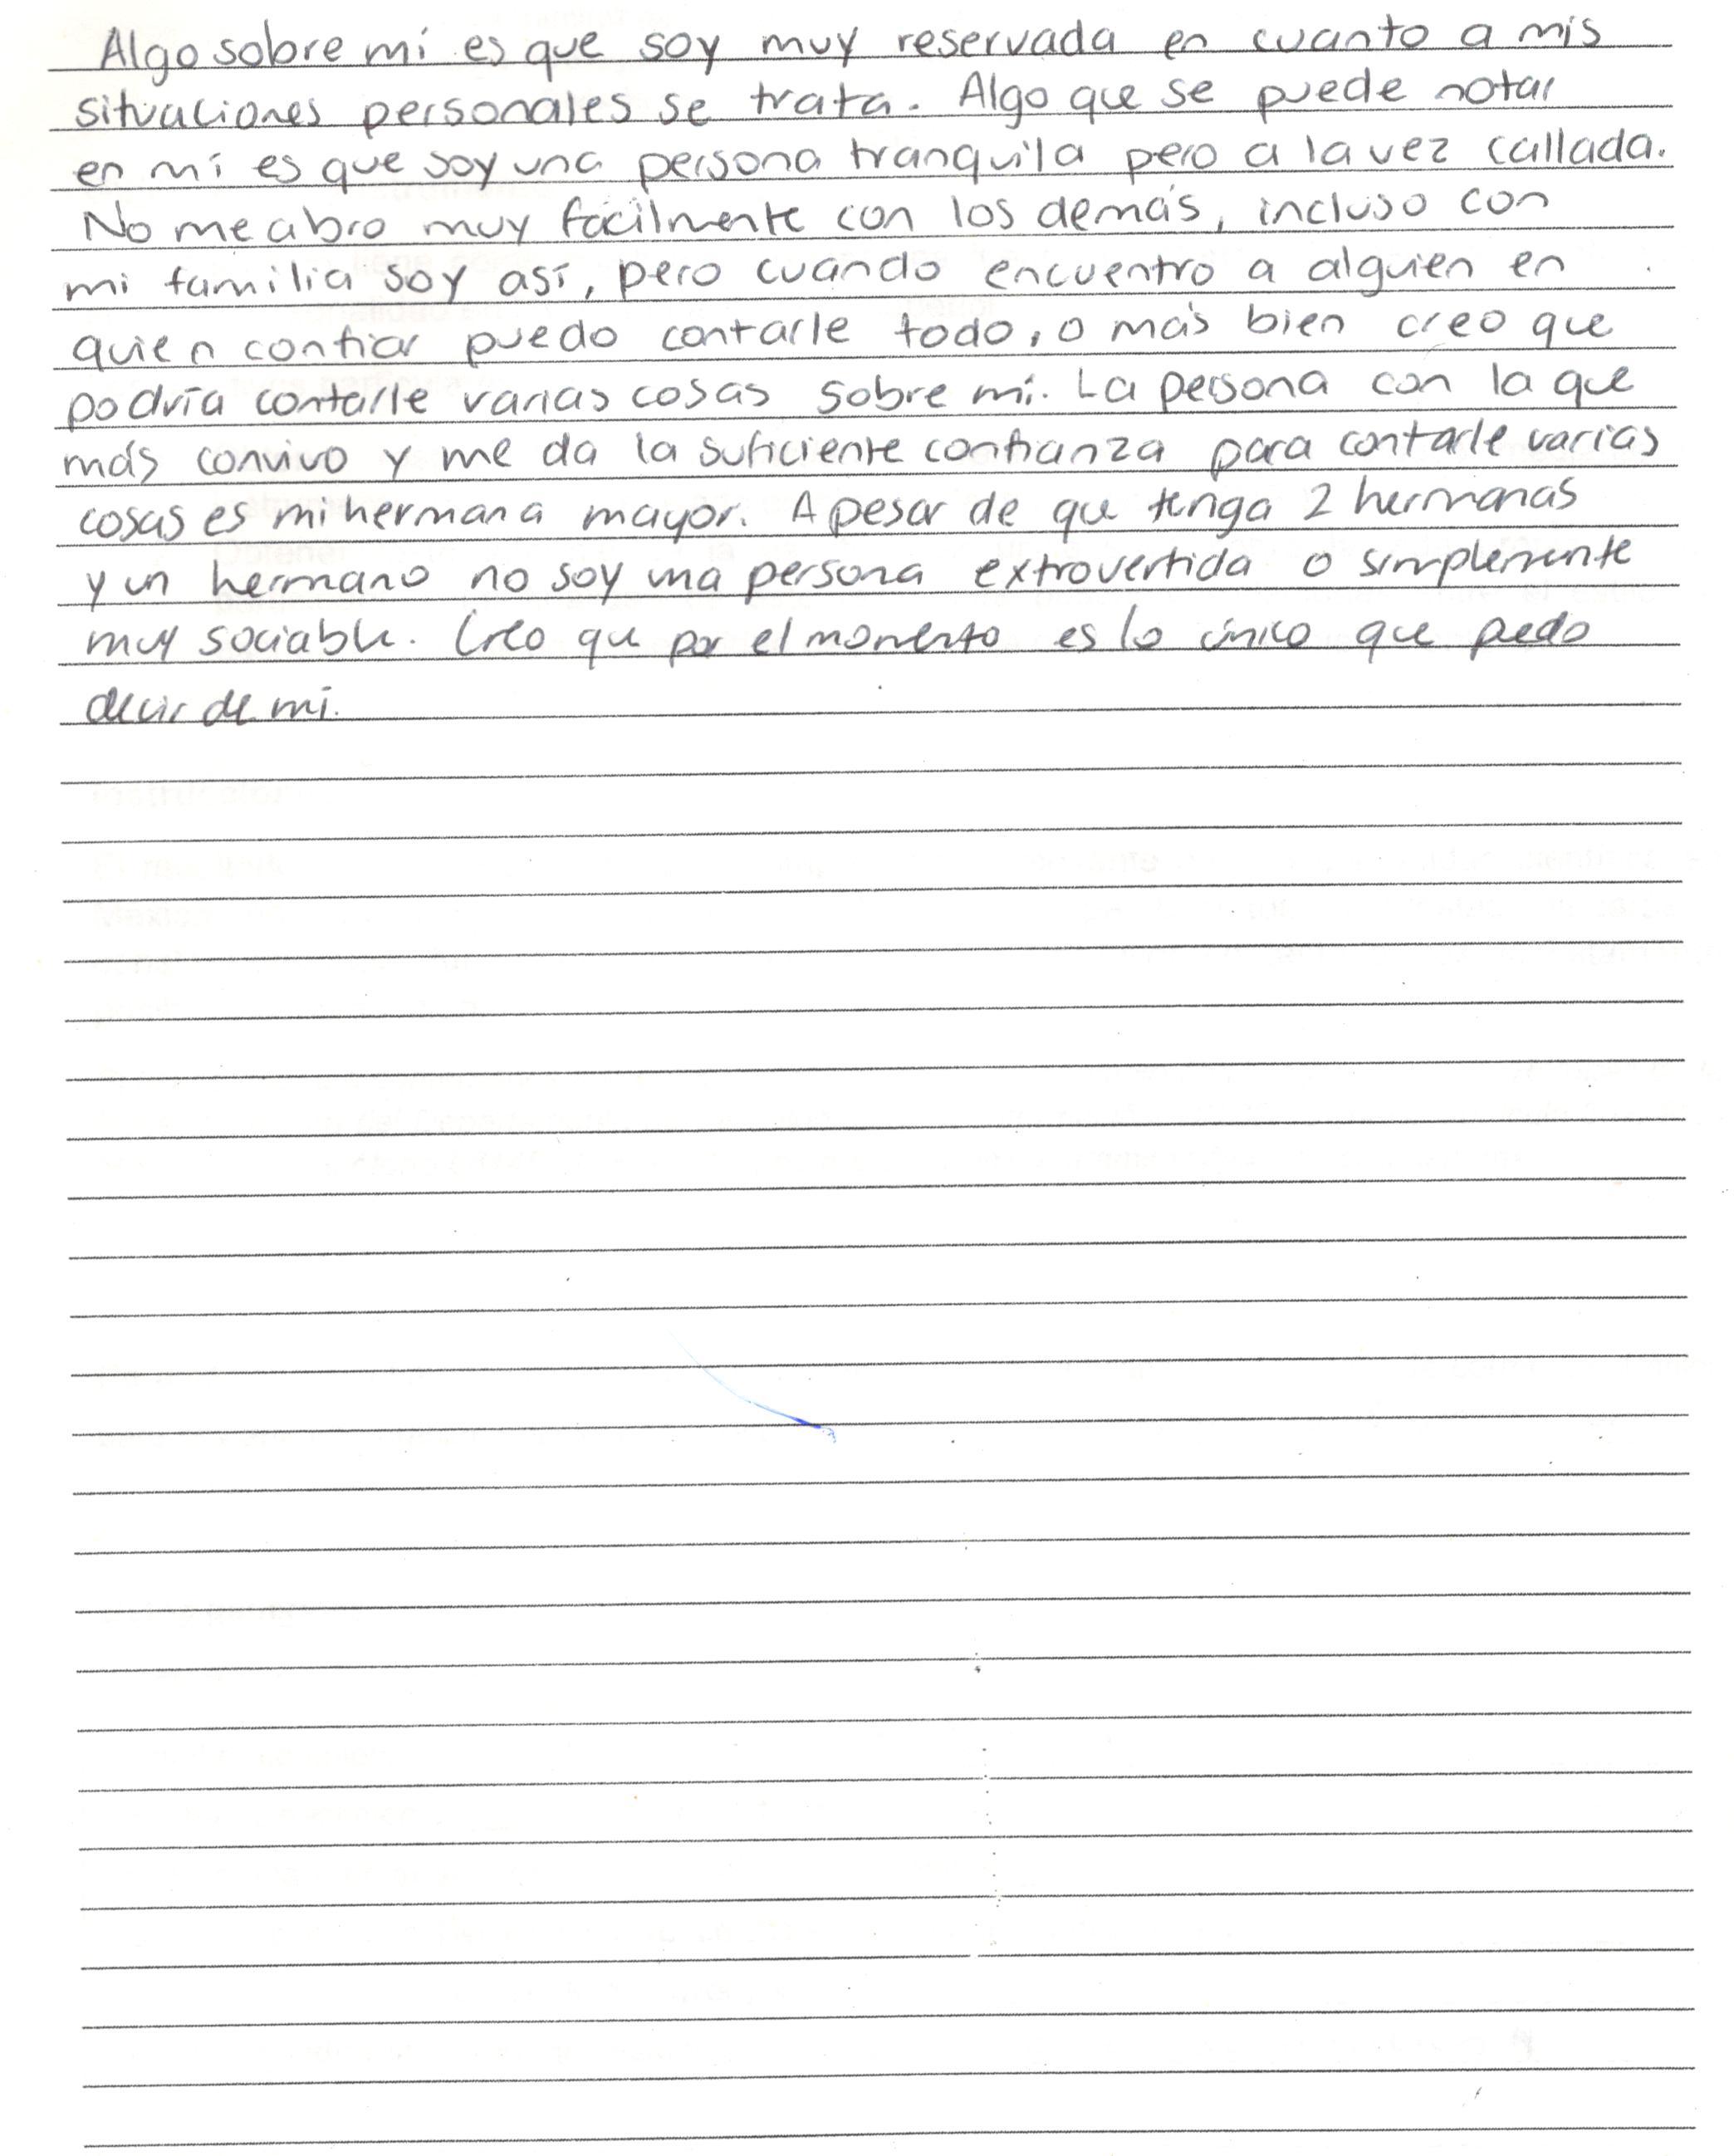 Algo sobre mí es que soy muy reservada en cuanto a mis
situaciones personales se trata. Algo que se puede notar
en mí es que soy una persona tranquila pero a la vez callada.
No me abro muy fácilmente con los demás, incluso con
mi familia soy así, pero cuando encuentro a alguien en
quien confiar puedo contarle todo, o más bien creo que
podría contarle varias cosas sobre mí. La persona con la que
más convivo y me da la suficiente confianza para contarle varias
cosas es mi hermana mayor. A pesar de que tenga 2 hermanas
y un hermano no soy una persona extrovertida o simplemente
muy sociable. Creo que por el momento es lo único que puedo
decir de mí.